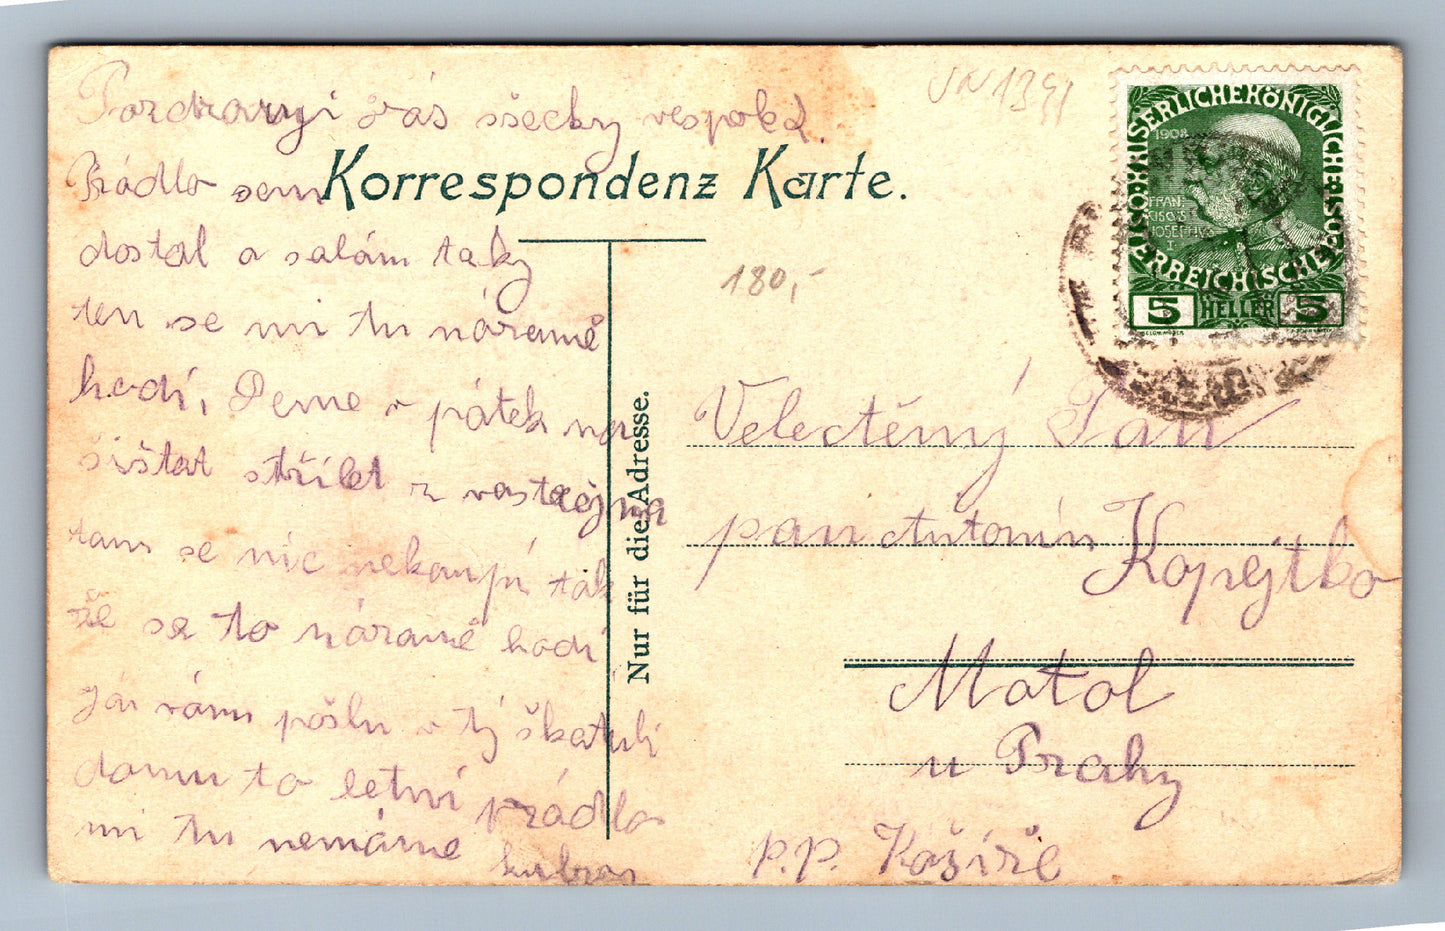 Pozdravuji vás ššecky vespolek.
Korrespondenz Karte.
Prádlo sem
dostal a salám taky
ten se mi tu náramě
hodí, Deme v pátek na
šištat střílet z
tam se nic nekoupí tak
že se to náramě hodí
Já vám pošlu v tý škatuli
domu to letní prádlo
mi tu nemáme
Nur für die Adresse.
VN 1391
180,-
KAISERLICHE KÖNIGLICHE ÖSTERREICHISCHE POST
1908
FRAN
CISCVS
IOSEPHVS
I.
5 HELLER 5
Velectěný Pan
pan Antonín Kopejtko
Motol
u Prahy
p.p. Košíře